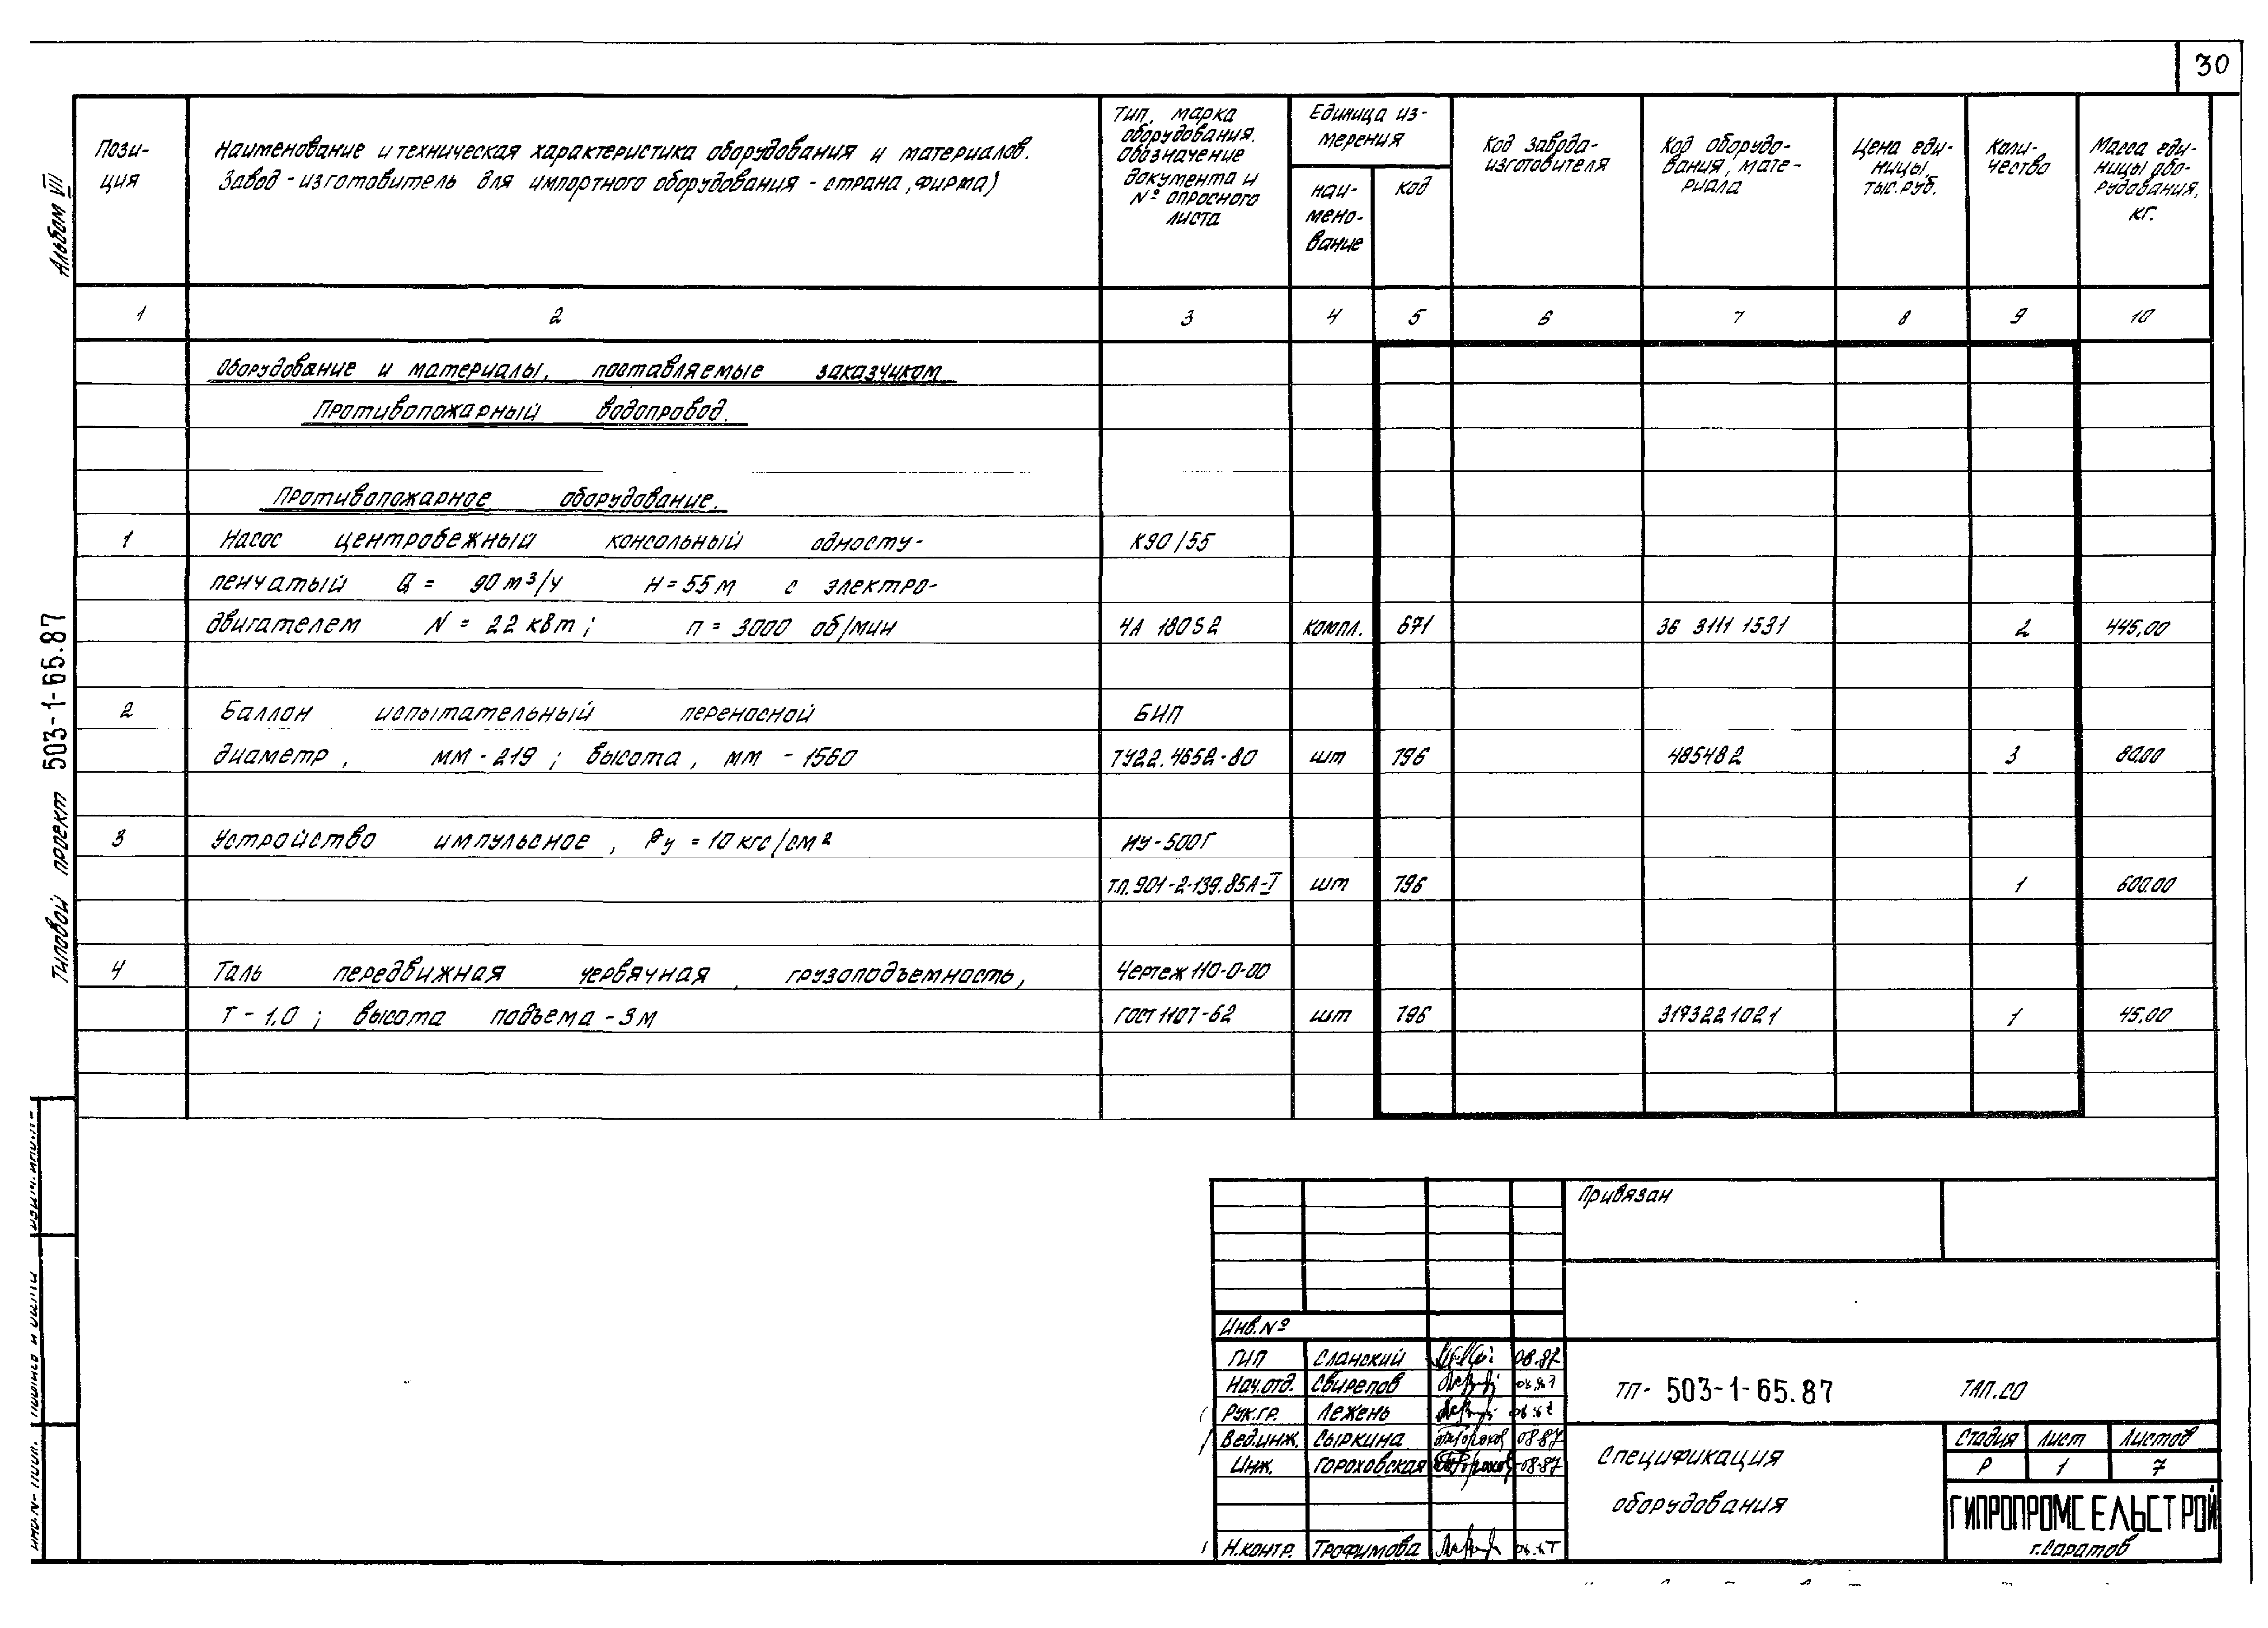 30
Альбом VIII
Типовой проект 503-1-65.87
Пози-
ция
Наименование и техническая характеристика оборудования и материалов.
Завод-изготовитель для импортного оборудования - страна, фирма)
Тип, марка
оборудования.
Обозначение
документа и
№ опросного
листа
Единица из-
мерения
наи-
мено-
вание
код
Код завода-
изготовителя
Код оборудо-
вания, мате-
риала
Цена еди-
ницы,
тыс.руб.
Коли-
чество
Масса еди-
ницы обо-
рудования,
кг.
1 2 3 4 5 6 7 8 9 10
Оборудование и материалы, поставляемые заказчиком
Противопожарный водопровод.
Противопожарное оборудование.
1 Насос центробежный консольный односту- К90/55
пенчатый Q = 90 м³/ч Н = 55 м с электро-
двигателем N = 22 квт; п = 3000 об/мин 4А 180S2 компл. 671 36 3111 1531 2 445,00
2 Баллон испытательный переносной БИП
диаметр, мм - 219; высота, мм - 1560 ТУ22.4652-80 шт 796 485482 3 80.00
3 Устройство импульсное, Ру = 10 кгс/см² ИУ-500Г
т.п.901-2-139.85А-I шт 796 1 600.00
4 Таль передвижная червячная, грузоподъемность, Чертеж 110-0-00
Т - 1,0; высота подъема - 3 м ГОСТ 1107-62 шт 796 3193221021 1 45.00
Привязан
Инв.№
ГИП Сланский 08.87
Нач.отд. Свирепов
Рук.гр. Лежень
Вед.инж. Сыркина 08.87
Инж. Гороховская 08.87
Н.контр. Трофимова
ТП- 503-1-65.87 ТАП.СО
Спецификация
оборудования
Стадия Лист Листов
Р 1 7
ГИПРОПРОМСЕЛЬСТРОЙ
г.Саратов